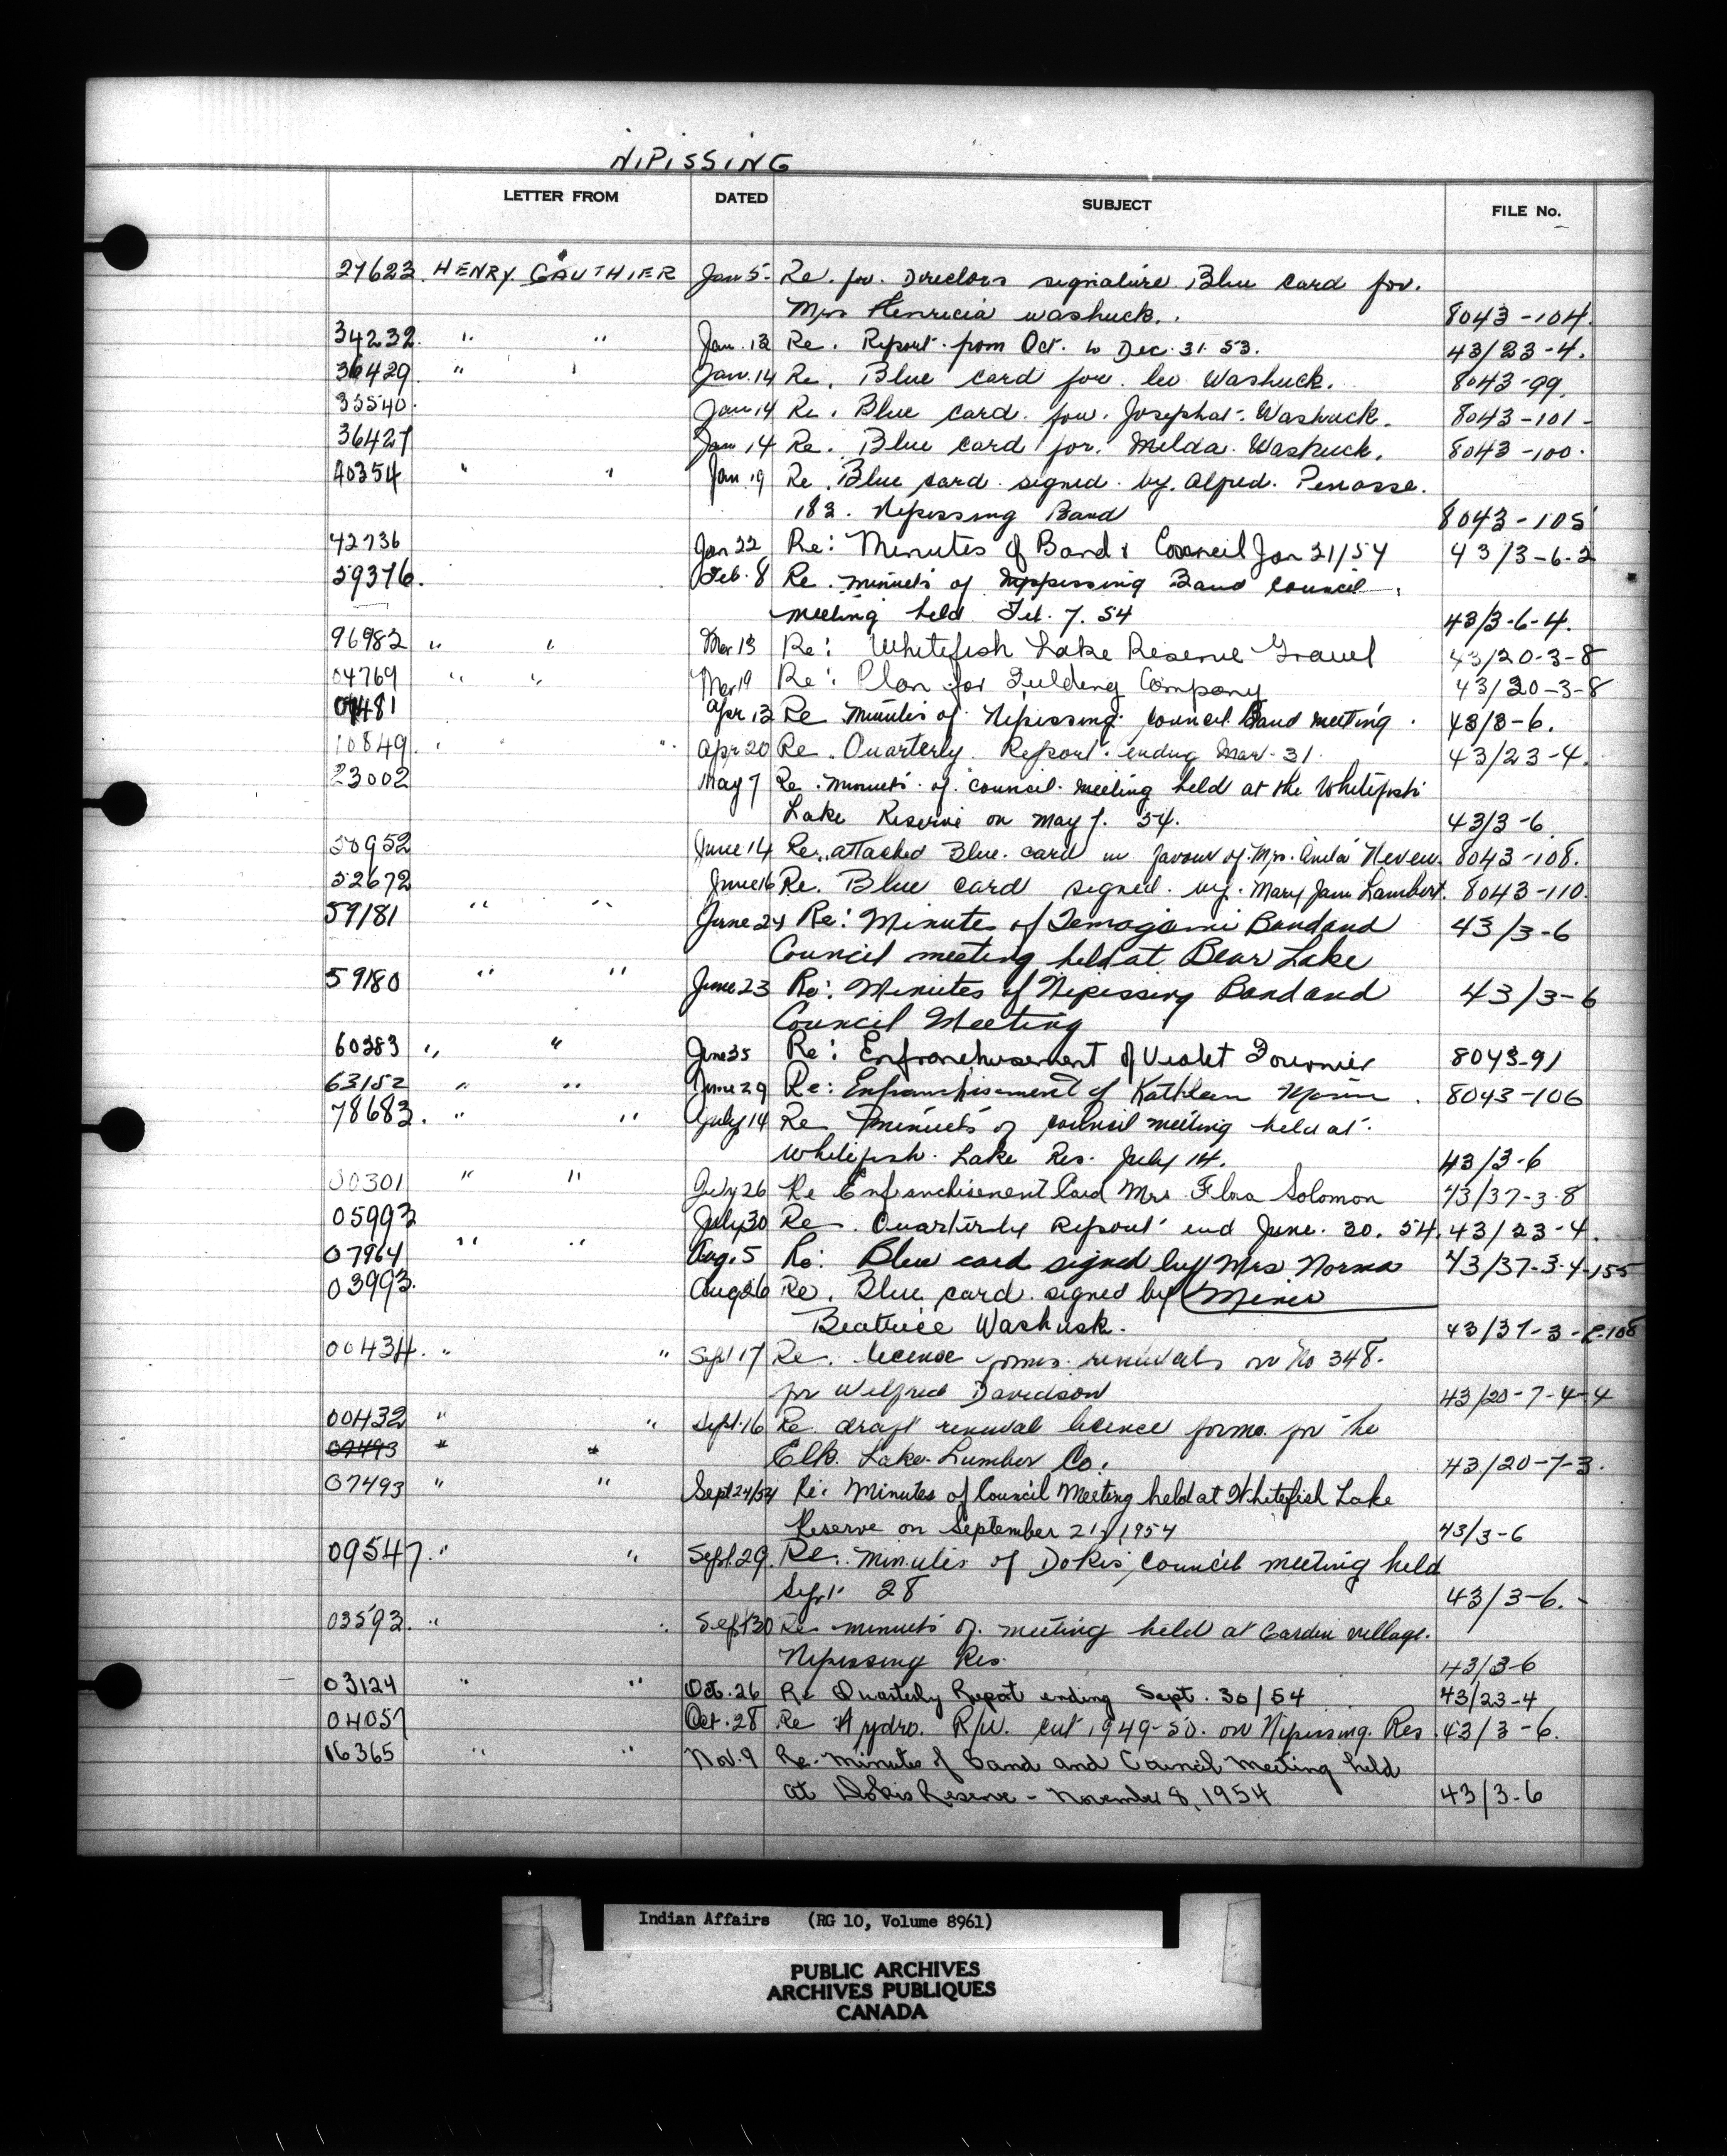 NIPISSING
LETTER FROM DATED SUBJECT FILE No.
27623. HENRY GAUTHIER Jan 5. Re. for Directors signature Blue card for.
Mrs Henricia washuck. 8043-104.
34232. " " Jan. 13 Re. Report from Oct. to Dec. 31. 53. 43/23-4.
36429. " " Jan. 14 Re. Blue card for. Leo Washuck. 8043-99.
35540. Jan 14 Re. Blue card for. Josephat Washuck. 8043-101-
36427 Jan 14 Re. Blue card for. Melda Washuck. 8043-100.
40354 " " Jan. 19 Re. Blue card signed by. Alfred. Penasse.
182. Nipissing Band 8043-105
42736 Jan 22 Re: Minutes of Band & Council Jan 21/54 43/3-6-2
59376. Feb. 8 Re. minuets of Nippissing Band council
meeting held Feb. 7. 54 43/3-6-4.
96982 " " Mar 13 Re: Whitefish Lake Reserve Gravel 43/20-3-8
04769 " " Mar 19 Re: Plan for Fielding Company 43/20-3-8
Apr. 13 Re minutes of Nipissing council Band meeting. 43/3-6.
10849. " " Apr 20 Re. Quarterly Report ending Mar. 31. 43/23-4.
23002 May 7 Re. minuets of council meeting held at the Whitefish
Lake Reserve on may 7. 54. 43/3-6.
50952 June 14 Re. attached Blue card in favour of Mrs. Anita Neveu. 8043-108.
52672 June 16 Re. Blue card signed by. Mary Jane Lambert. 8043-110.
59181 " " June 24 Re: Minutes of Temagami Band and 43/3-6
Council meeting held at Bear Lake
59180 " " June 23 Re: Minutes of Nipissing Band and 43/3-6
Council Meeting
60383 " " June 25 Re: Enfranchisement of Violet Fournier 8043-91
63152 " " June 29 Re: Enfranchisement of Kathleen Morin. 8043-106
78683. " " July 14 Re minuets of council meeting held at
Whitefish Lake Res. July 14. 43/3-6
00301 " " July 26 Re Enfranchisement Card Mrs. Flora Solomon 43/37-3-8
05993 July 30 Re. Quarterly Report end June. 30. 54. 43/23-4.
07964 " " Aug. 5 Re: Blue card signed by Mrs Norma 43/37-3-4-155
03993. Aug 26 Re. Blue card signed by
Beatrice Washusk. 43/37-3-
00434. " " Sept 17 Re. licence forms renewals on No 348.
for Wilfred Davidson 43/20-7-4-4
00432 " " Sept. 16 Re draft renewal licence forms for the
07493 " " Elk. Lake Lumber Co. 43/20-7-3.
07493 " " Sept 24/54 Re: Minutes of Council Meeting held at Whitefish Lake
Reserve on September 21, 1954 43/3-6
09547. " " Sept. 29. Re. minutes of Dokis council meeting held
Sept 28 43/3-6.-
03592. " " Sept 30 Re minuets of meeting held at Garden village.
Nipissing Res. 43/3-6
03124 " " Oct. 26 Re Quarterly Report ending Sept. 30/54 43/23-4
04057 Oct. 28 Re Hydro. R/W. cut 1949-50. on Nipissing. Res. 43/3-6.
16365 " " Nov. 9 Re. Minutes of Band and Council Meeting held
at Dokis Reserve - November 8, 1954 43/3-6
Indian Affairs (RG 10, Volume 8961)
PUBLIC ARCHIVES
ARCHIVES PUBLIQUES
CANADA